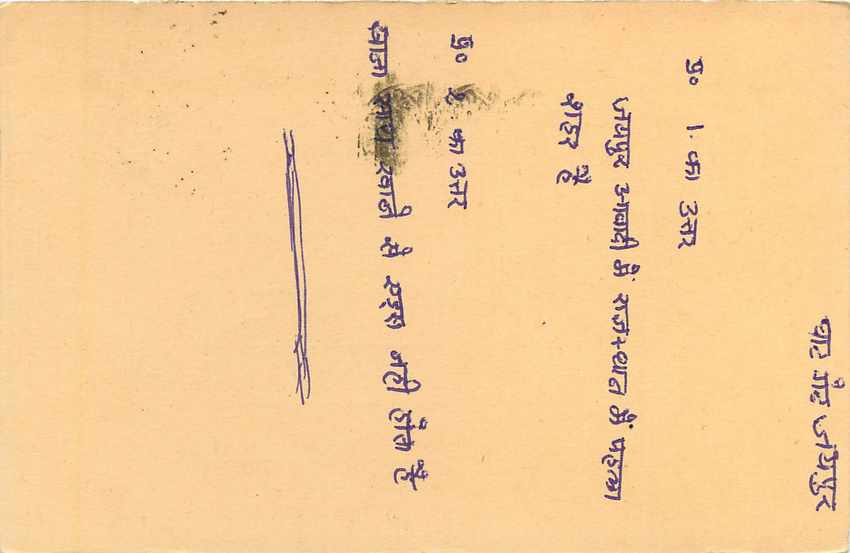 घाट गेट जयपुर
प्र० 1. का उत्तर
जयपुर आबादी में राजस्थान में पहला
शहर हैं
प्र० २ का उत्तर
खाना साथ से नही हैं